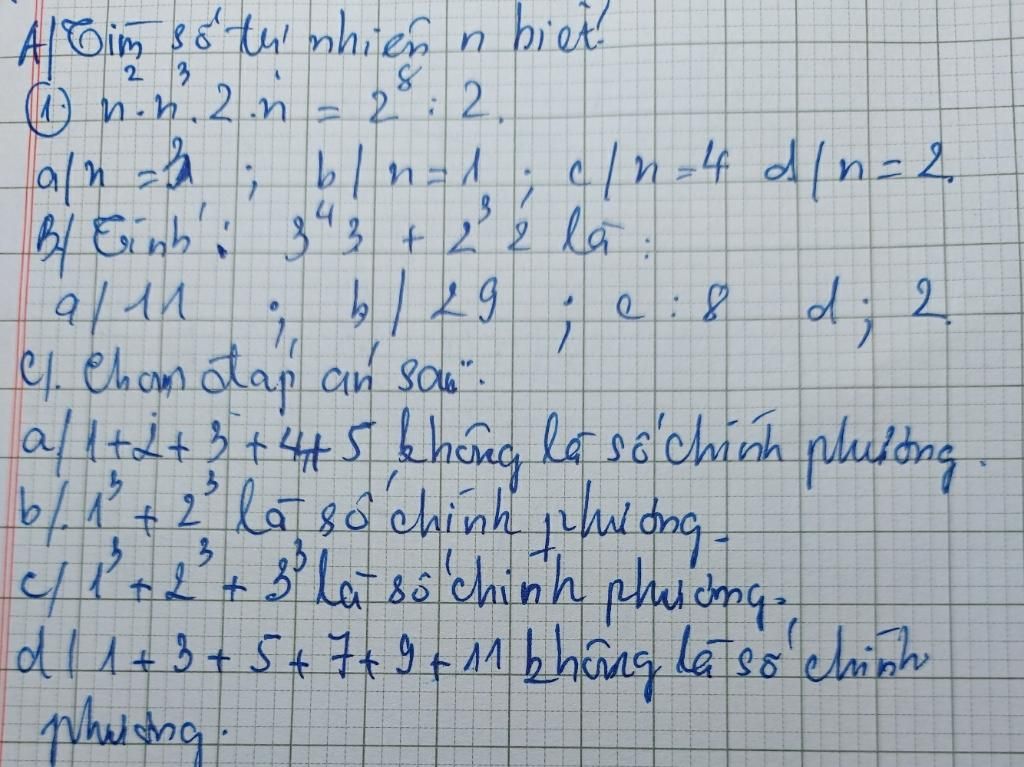 A/ Tìm số tự nhiên n biết:
① n².n³.2.n = 2⁸ : 2.
a/ n = 3 ; b/ n = 1 ; c/ n = 4 d/ n = 2.
B/ Tính : 3⁴ 3 + 2³ 2 là :
a/ 11 ; b/ 29 ; c : 8 d ; 2.
C/. Chọn đáp án sau:
a/ 1+2+3+4+5 không là số chính phương.
b/. 1³ + 2³ là số chính phương.
c/ 1³ + 2³ + 3³ là số chính phương.
d/ 1 + 3 + 5 + 7 + 9 + 11 không là số chính
phương.